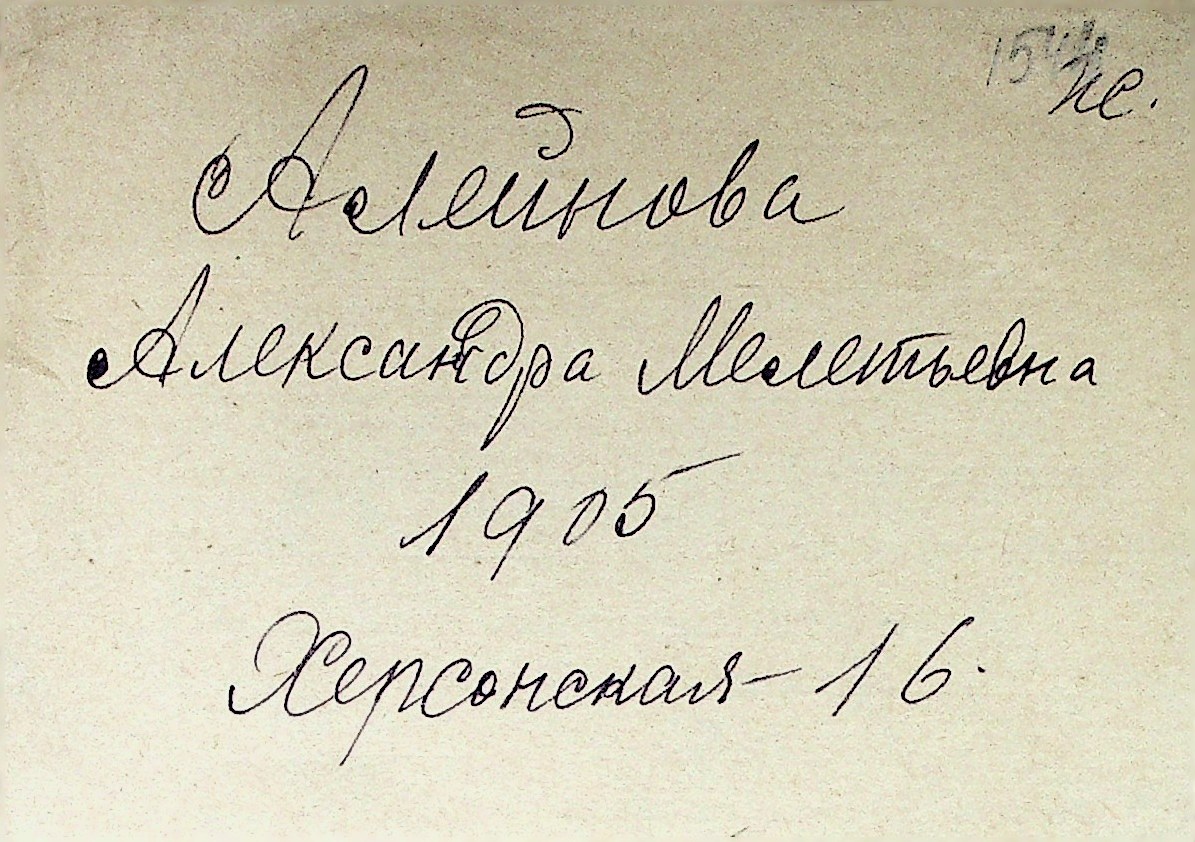 же.
Алейнова
Александра Мелетьевна
1905
Херсонская - 16.